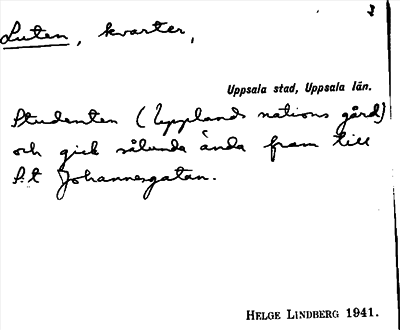 3
Luten, kvarter,
Uppsala stad, Uppsala län.
Studenten (Upplands nations gård)
och gick sålunda ända fram till
S:t Johannesgatan.
HELGE LINDBERG 1941.